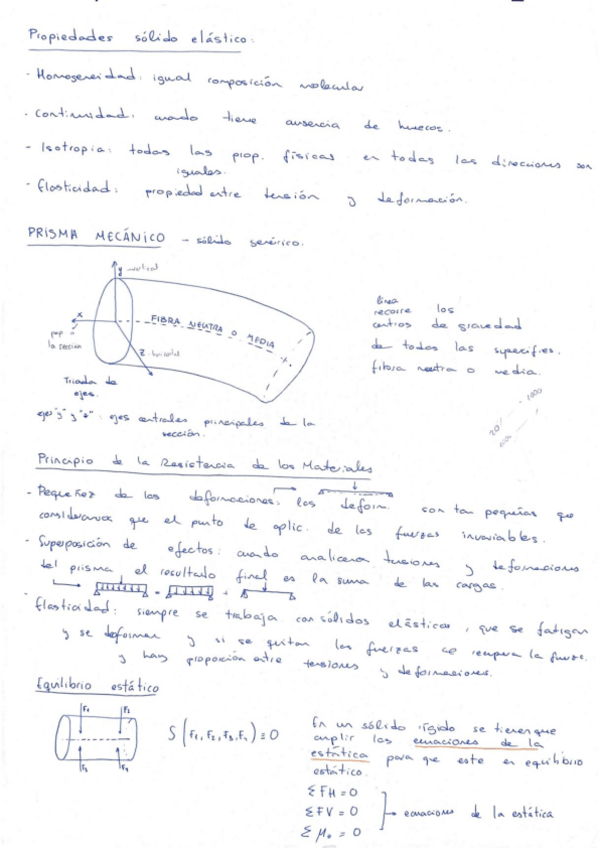 Propiedades sólido elástico:
- Homogeneidad: igual composición molecular
- Continuidad: cuando tiene ausencia de huecos.
- Isotropia: todas las prop. físicas en todas las direcciones son
iguales.
- Elasticidad: propiedad entre tensión y deformación.
PRISMA MECÁNICO - sólido genérico.
y - vertical
x
perp a
la sección
FIBRA NEUTRA O MEDIA
z - horizontal
Triada de
ejes.
línea
recorre los
centros de gravedad
de todas las superficies.
fibra neutra o media.
ejes "y" y "z": ejes centrales principales de la
sección.
20
1000
Principio de la Resistencia de los Materiales
- Pequeñez de las deformaciones: las deform. son tan pequeñas que
consideramos que el punto de aplic. de las fuerzas invariables.
- Superposición de efectos: cuando analicemos tensiones y deformaciones
del prisma el resultado final es la suma de las cargas.
= +
- Elasticidad: siempre se trabaja con sólidos elásticos, que se fatigan
y se deforman y si se quitan las fuerzas se recupera la
y hay proporción entre tensiones y deformaciones.
Equilibrio estático
F1 F2
F3 F4
S (F1, F2, F3, F4) ≡ 0
En un sólido rígido se tienen que
cumplir las ecuaciones de la
estática para que este en equilibrio
estático.
Σ FH = 0
Σ FV = 0 → ecuaciones de la estática
Σ Mo = 0